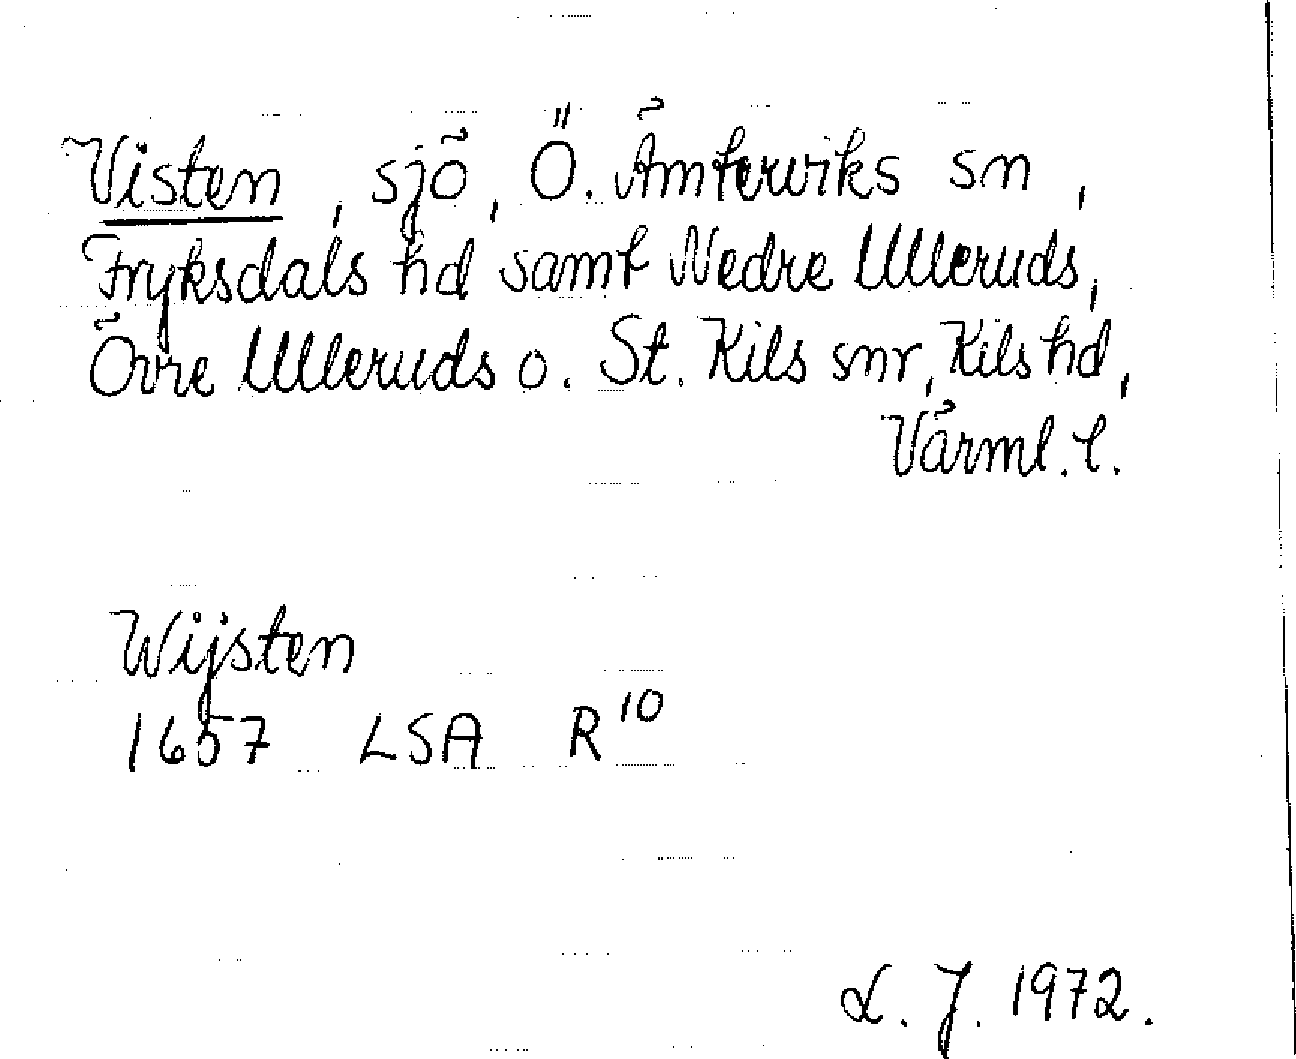 Visten, sjö, Ö. Ämterviks sn,
Fryksdals hd samt Nedre Ulleruds,
Övre Ulleruds o. St. Kils snr, Kils hd,
Värml. l.
Wijsten
1657 LSA R10
L. J. 1972.